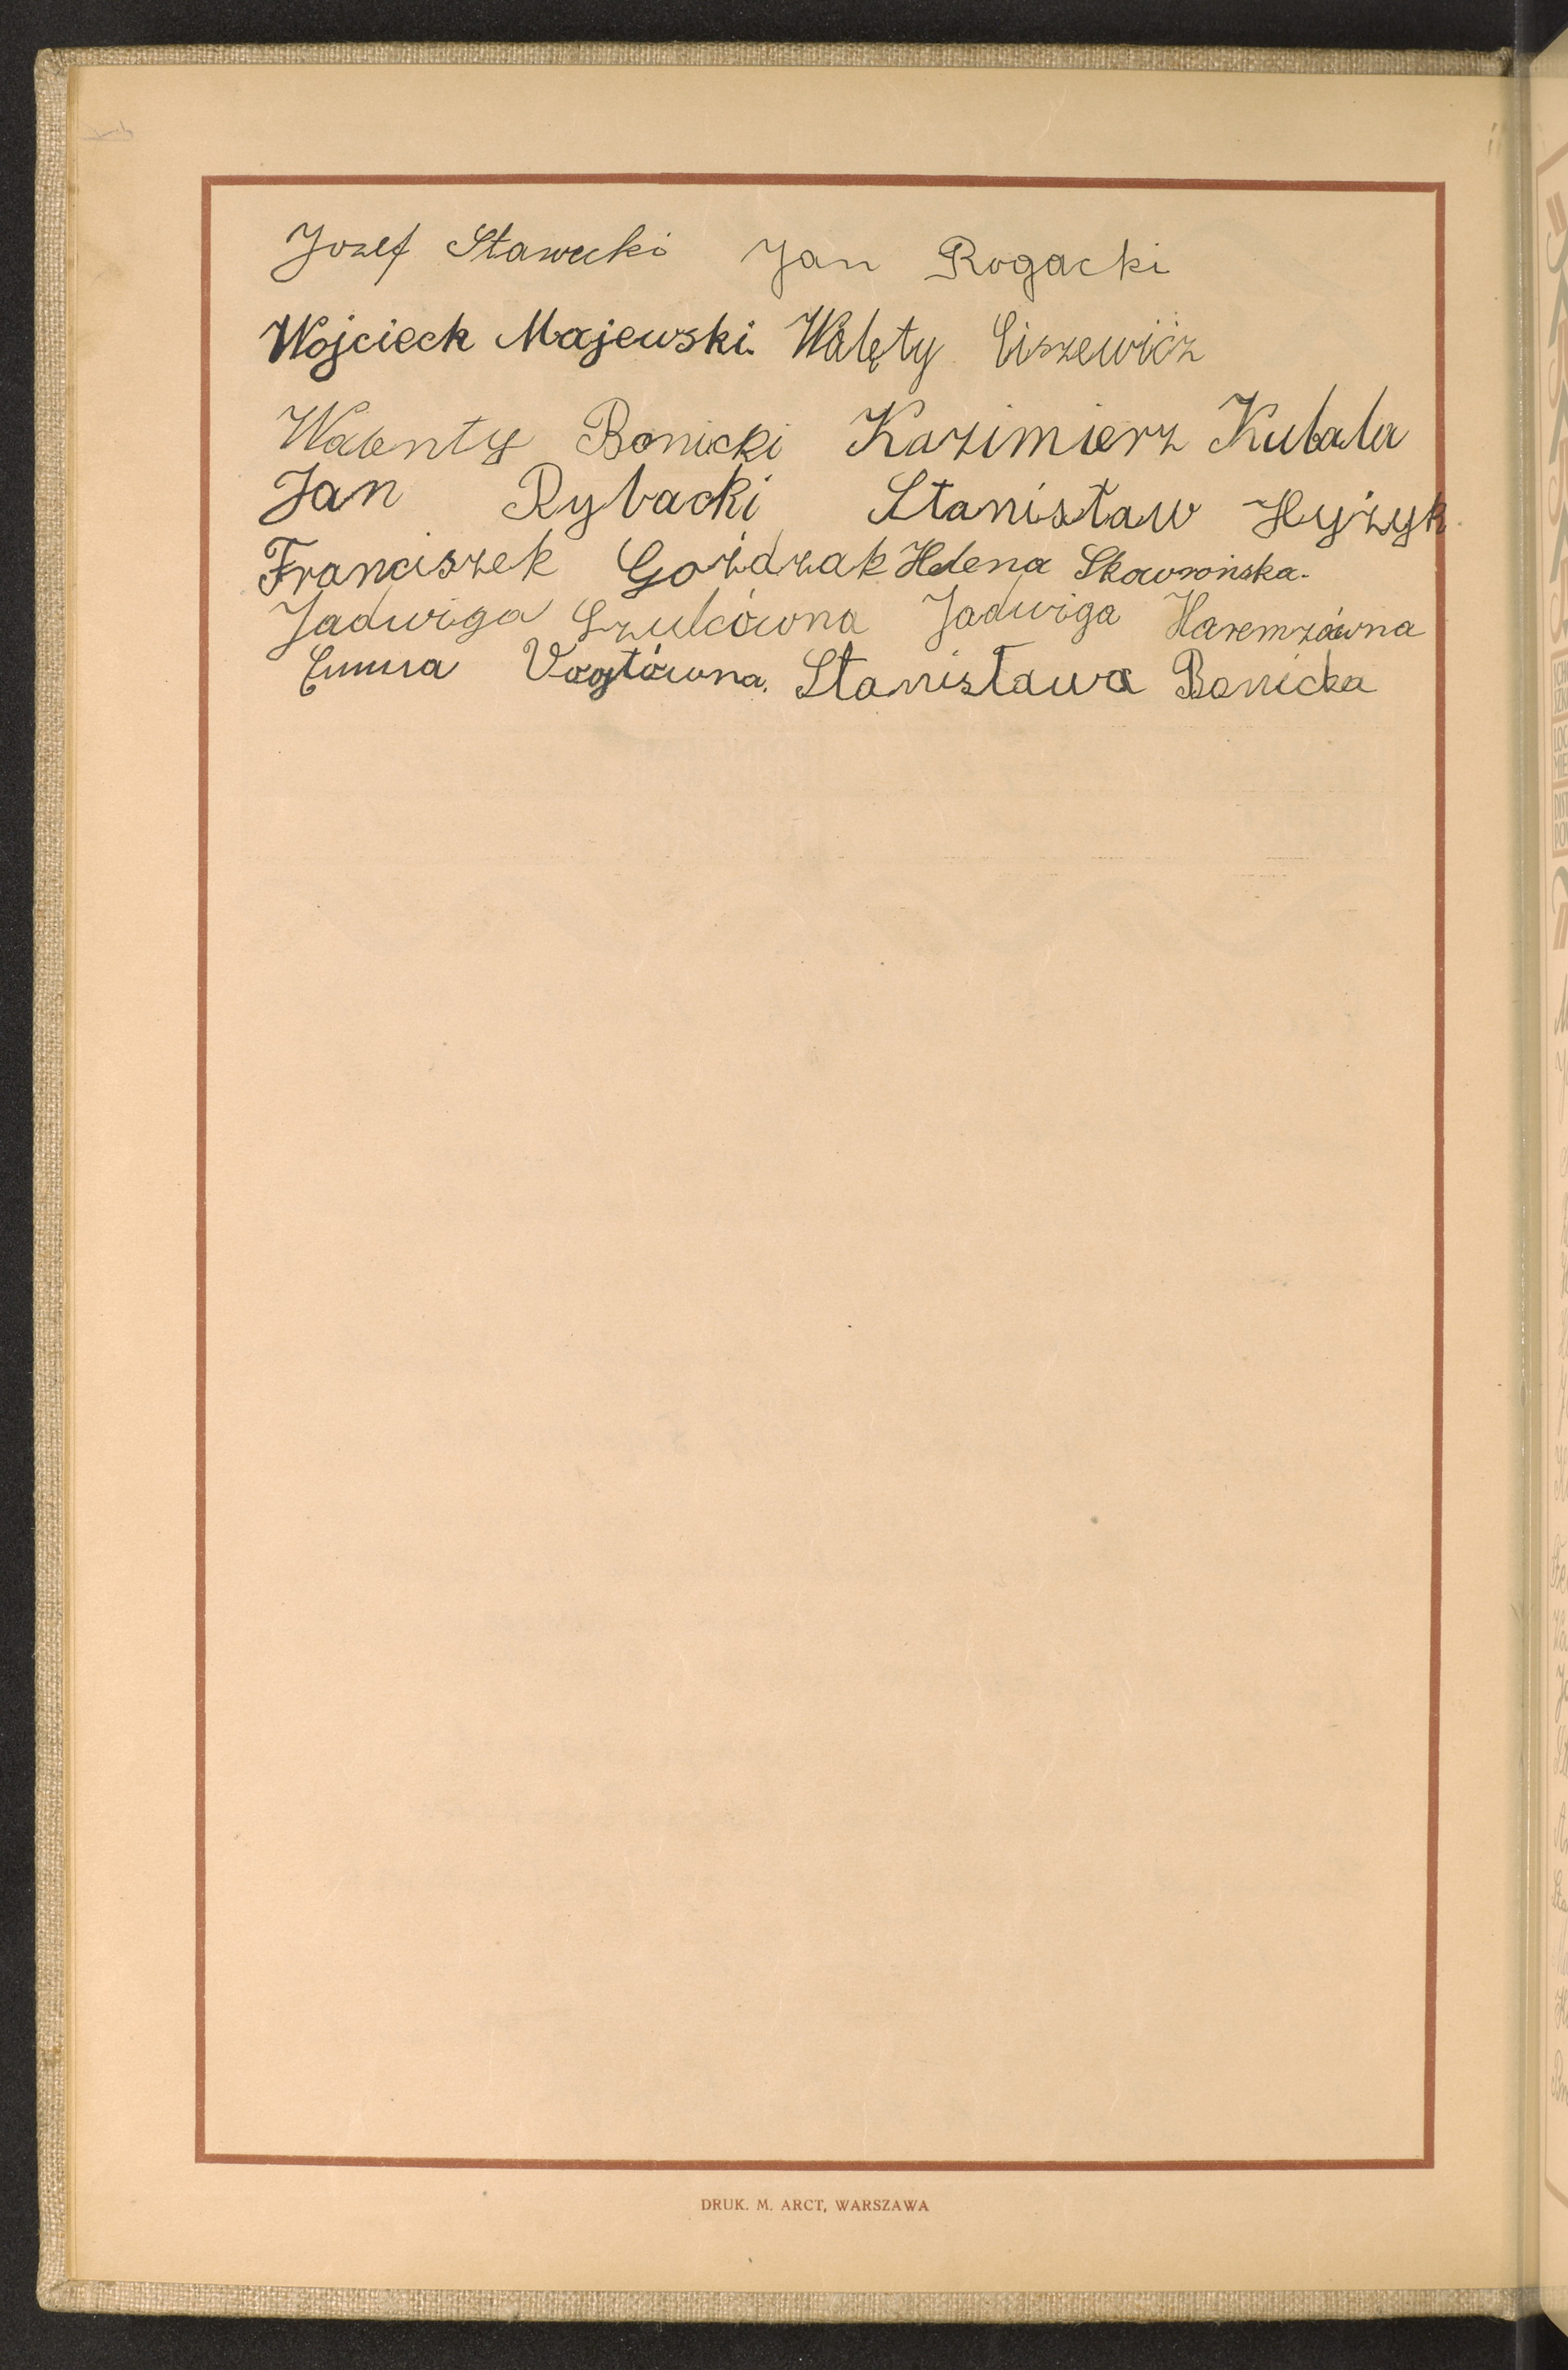 Jozef Stawecki Jan Rogacki
Wojciech Majewski. Walęty Ciszewicz
Walenty Bonicki Kazimierz Kubala
Jan Rybacki Stanisław Hyżyk
Franciszek Goździak Helena Skowrońska.
Jadwiga Szulcówna Jadwiga Haremzówna
Emma Vogtówna. Stanisława Bonicka
DRUK. M. ARCT, WARSZAWA